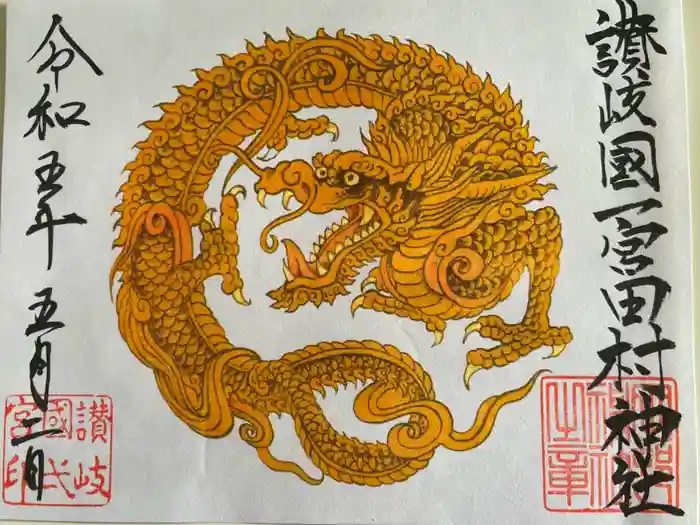 讃岐國一宮田村神社
令和五年五月二日
讃岐
國一
宮印